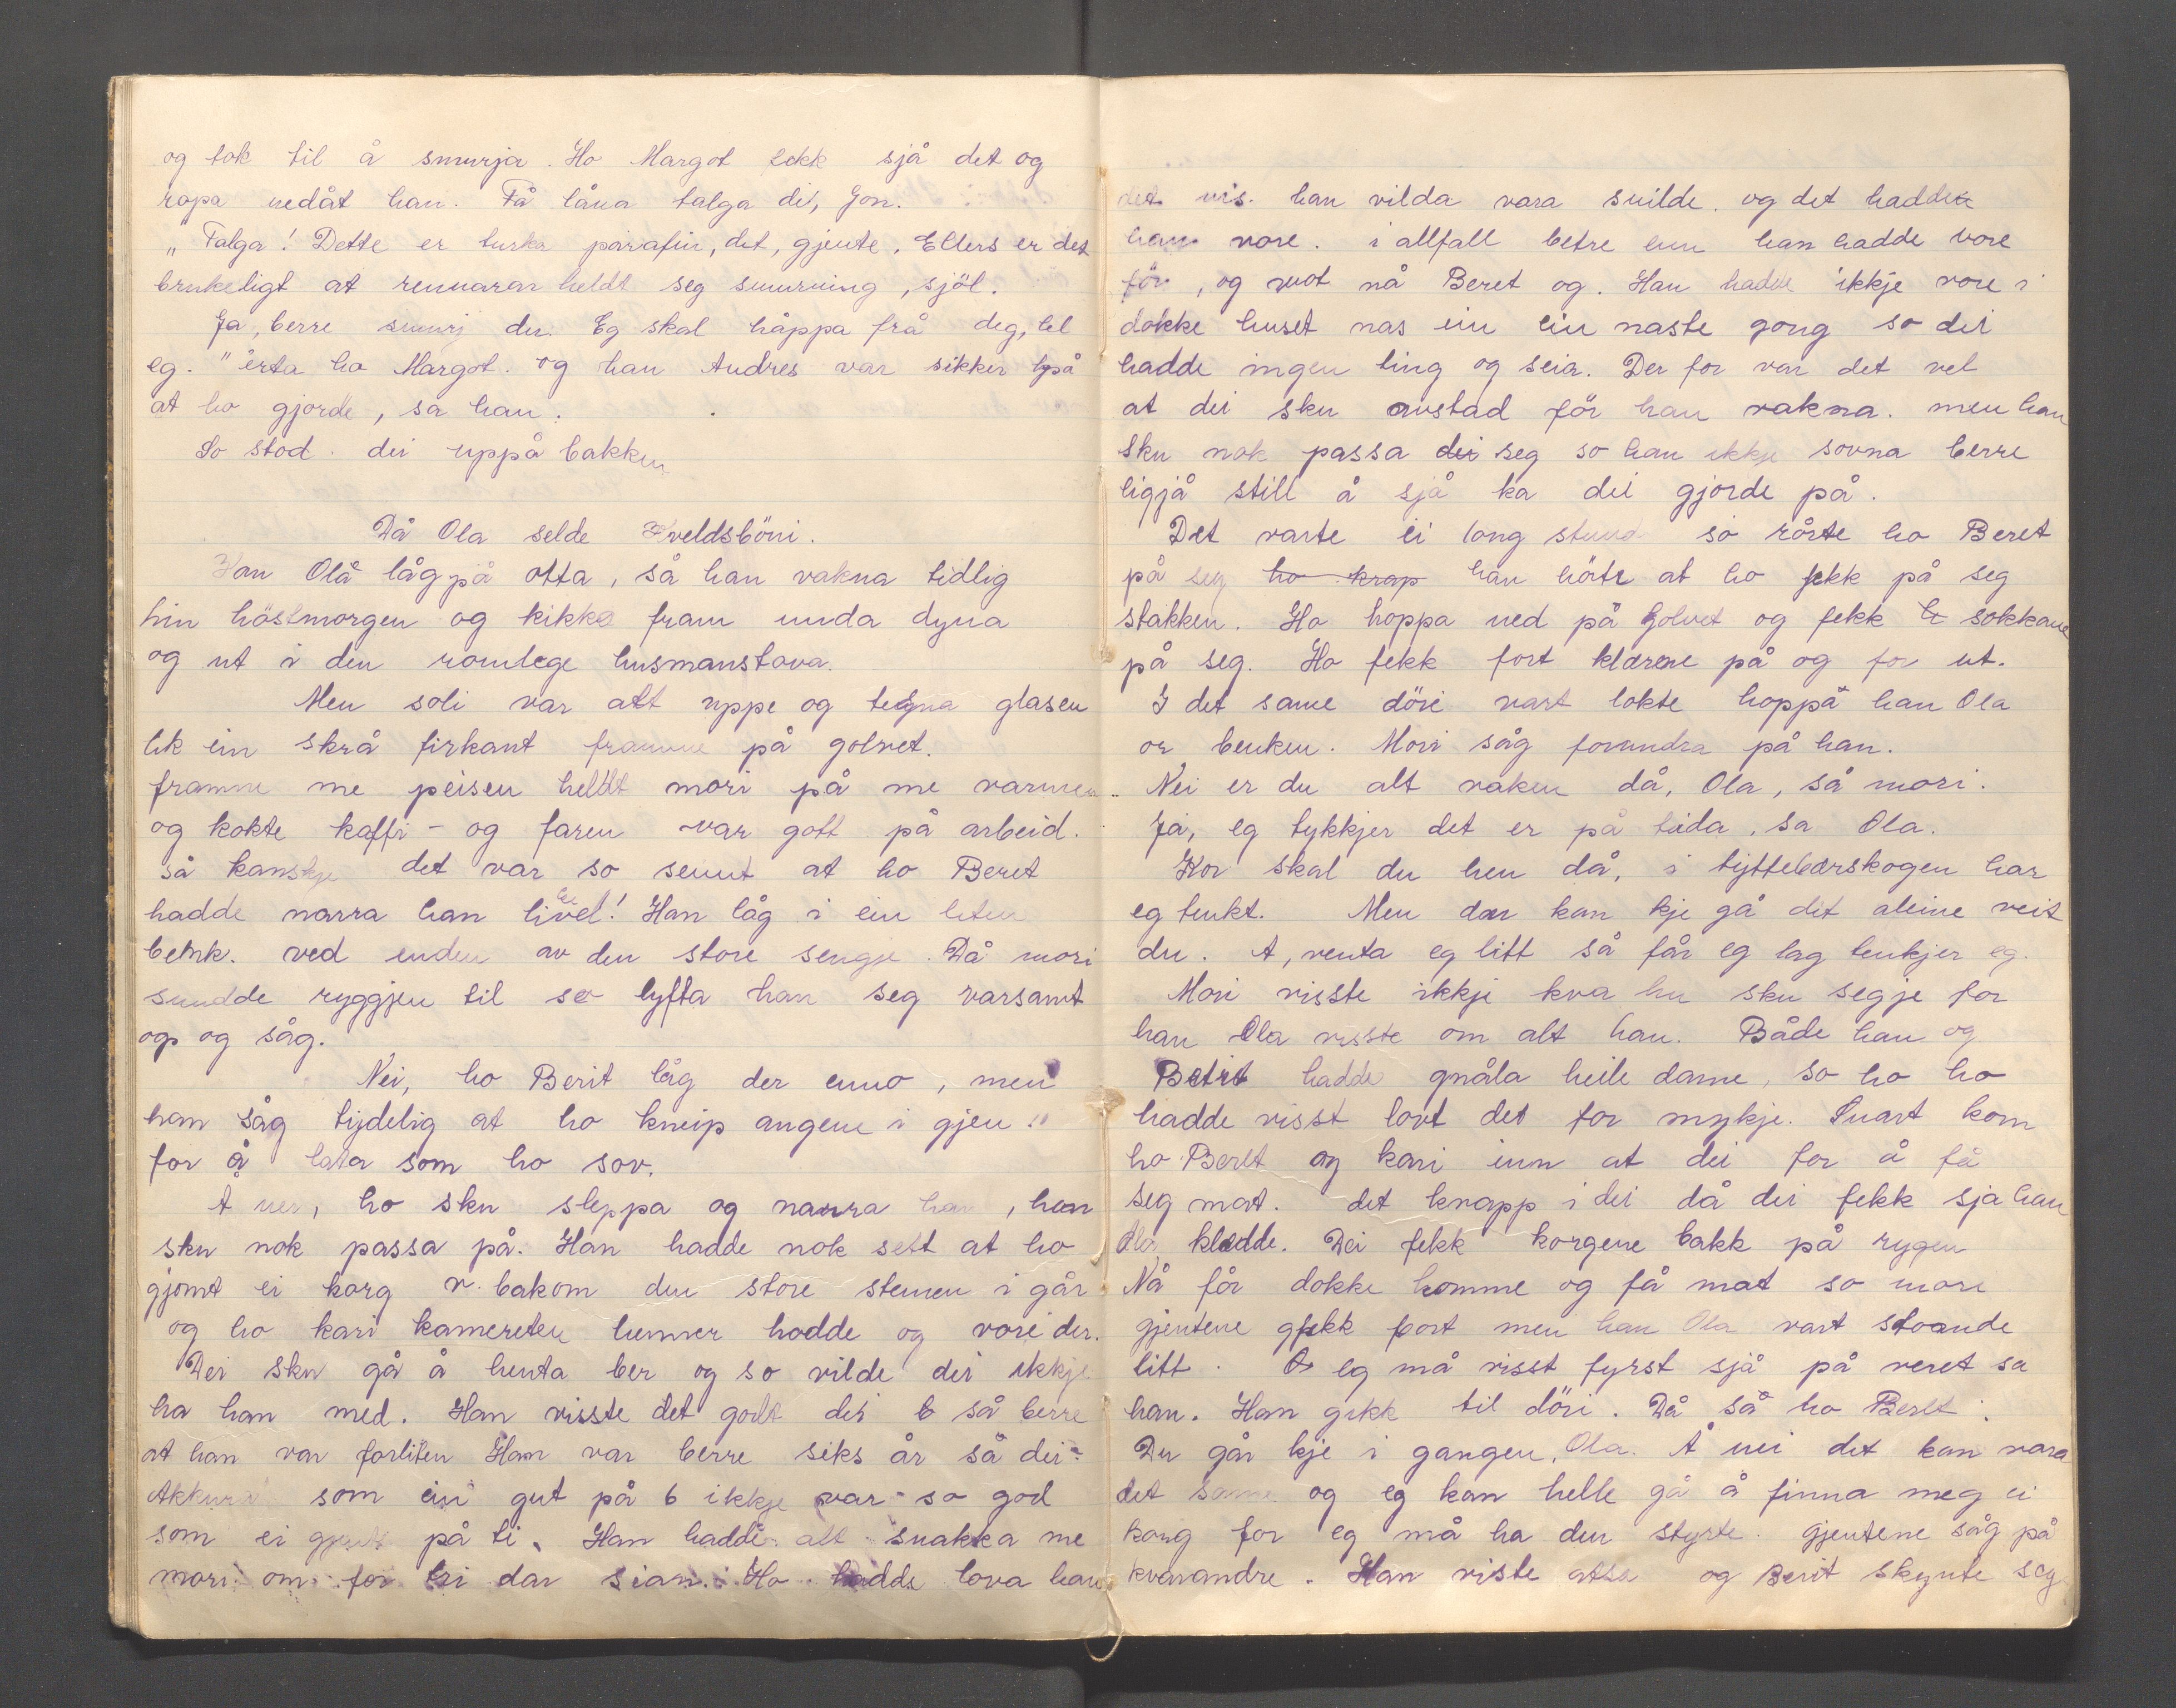 og tok til å smurja. Ho Margot fekk sjå det og
ropa nedåt han. Få låna talga di, Jon.
„Talga! Dette er turka parafin, det, gjente. Ellers er det
brukeligt at rennarar heldt seg smurning, sjöl.
Ja, berre smurj du. Eg skal håppa frå deg, lel
eg." erta ho Margot. og han Andres var sikker på
at ho gjorde, sa han.
So stod dei uppå bakken
Då Ola selde Kveldsböni.
Han Ola låg på otta, så han vakna tidlig
hin höstmorgen og kikka fram unda dyna
og ut i den romlege husmanstova.
Men soli var alt uppe og tegna glasen
lik ein skrå firkant framme på golvet.
framme me peisen heldt mori på me varmen
og kokte kaffi - og faren var gott på arbeid.
så kanskje det var so seint at ho Beret
hadde narra han livel! Han låg i ein liten
benk. ved enden av den store sengje. Då mori
snudde ryggjen til so lyfta han seg varsamt
op og såg.
Nei, ho Berit låg der enno, men
han såg tydelig at ho kneip augene i gjen
for å lata som ho sov.
Å nei, ho sku sleppa og narra han, han
sku nok passa på. Han hadde nok sett at ho
gjømt ei korg bakom den store steinen i går
og ho kari kamereten henner hadde og vore der.
Dei sku gå å henta ber og so vilde dei ikkje
ha han med. Han visste det godt dei så berre
at han var forliten Han var berre seks år så dei
Akkurat som ein gut på 6 ikkje var so god
som ei gjente på ti. Han hadde alt snakka me
mori om for tri dar sian. Ho hadde lova han
det vis. han vilda vara snilde. og det hadde
han vore. i allfall betre enn han hadde vore
för, og mot nå Beret og. Han hadde ikkje vore i
dokke huset nas ein ein naste gong so dei
hadde ingen ting og seia. Der for var det vel
at dei sku avstad för han vakna. men han
sku nok passa dei seg so han ikkje sovna berre
ligjå still å sjå ka dei gjorde på.
Det varte ei long stund so rørte ho Beret
på seg ho krap han hörte at ho fekk på seg
stakken. Ho hoppa ned på Golvet og fekk sokkane
på seg. Ho fekk fort klærene på og for ut.
I det same döri vart lokte hoppå han Ola
or benken. Mori såg forundra på han.
Nei er du alt vaken då, Ola, så mori.
Ja, eg tykkjer det er på tida, sa Ola.
Kor skal du hen då, i tyttebærskogen har
eg tenkt. Men du kan kje gå dit aleine veit
du. Å, venta eg litt så får eg lag tenkjer eg.
Mori visste ikkji kva hu sku segje for
han Ola visste om alt han. Både han og
Betrit hadde gnåla heile dame, so ho ho
hadde visst lovt det for mykje. Snart kom
ho Beret og kari inn at dei for å få
seg mat. det knapp i dei då dei fekk sja han
Ola kledde. Dei fekk korgene bakk på rygen
Nå får dokke komme og få mat so mori
gjentene gjekk fort men han Ola vart stoande
litt. Å eg må visst fyrst sjå på veret sa
han. Han gikk til döri. Då så ho Beret.
Du går kje i gangen, Ola. Å nei det kan vara
det same og eg kan helle gå å finna meg ei
korg for eg må ha den styrte. gjentene såg på
kvarandre. Han viste alt og Berit skynte seg